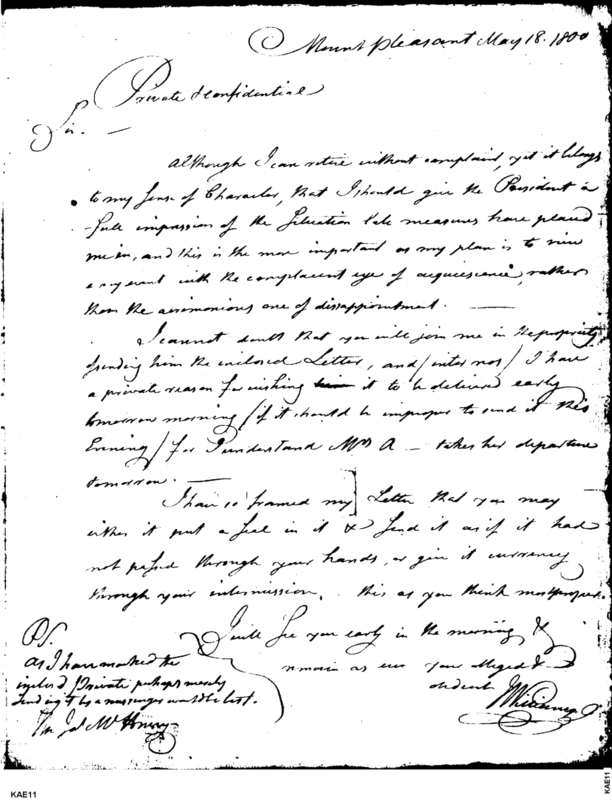 Mount Pleasant May 18. 1800
Private & Confidential
Sir. —
Although I can retire without complaint, yet it belongs
to my Sense of Character, that I should give the President a
full impression of the Situation late measures have placed
me in, and this is the more important as my plan is to view
with the complacent eye of acquiescence, rather
than the acrimonious one of disappointment. —
I cannot doubt that you will join me in the propriety
of sending him the inclosed Letter, and / inter nos / I have
a private reason for wishing it to be delivered early
tomorrow morning / if it should be improper to send it this
Evening / for I understand Mrs A — takes her departure
tomorrow. —
I have so framed my Letter that you may
either put a seal in it & send it as if it had
not passed through your hands, or give it currency
through your intermission, this as you think most proper.
I will see you early in the morning &
remain as ever your obliged &
obedient
PS.
As I have marked the
inclosd Private perhaps merely
sending it by a messenger would be best.
McHenry
KAE11
KAE11